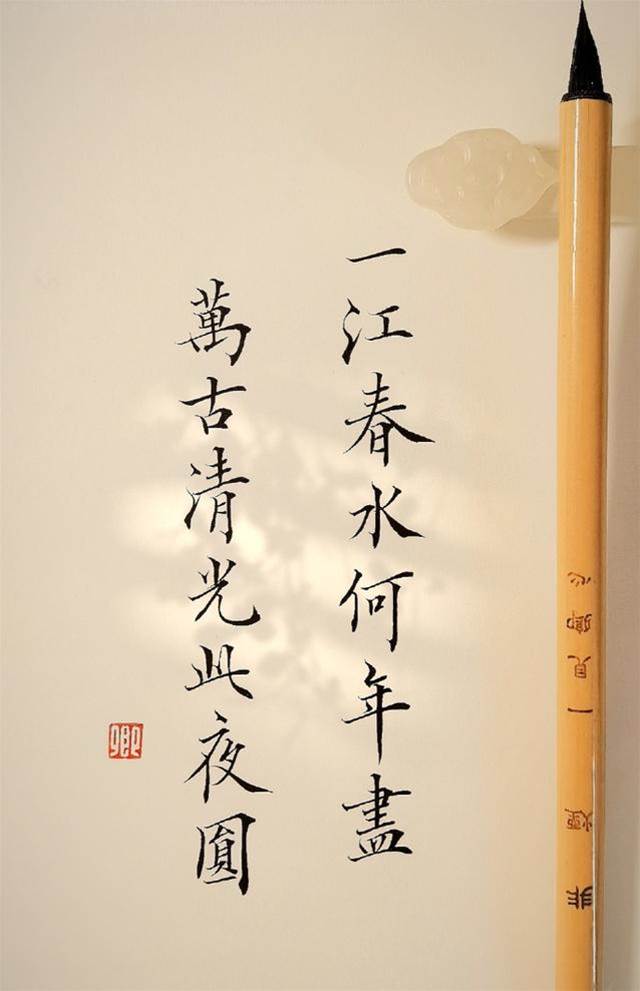 一江春水何年盡
萬古清光此夜圓
卿